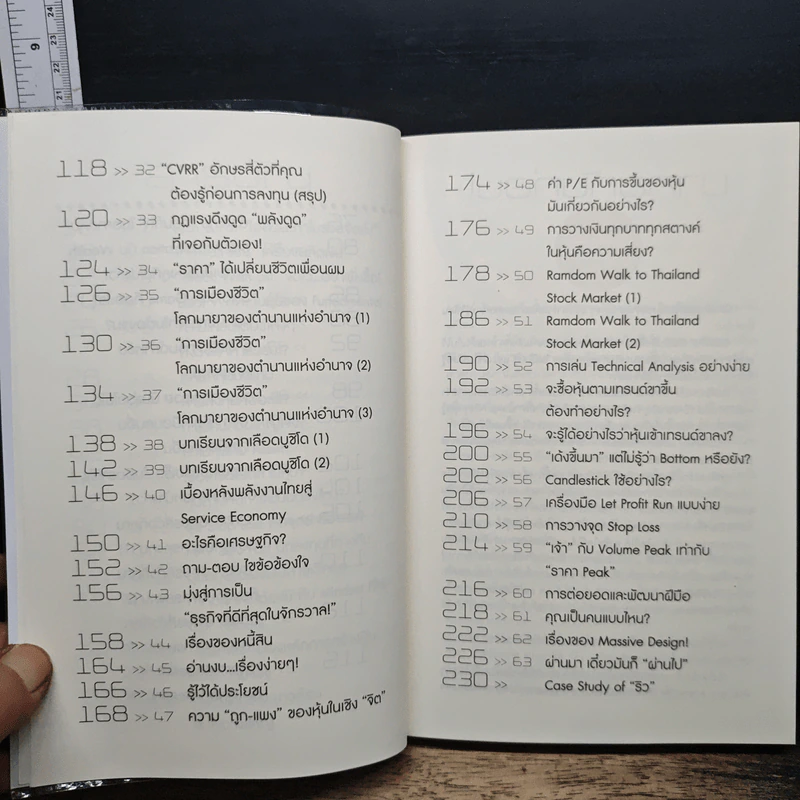 9
24
23
22
21
118 >> 32 “CVRR” อักษรสี่ตัวที่คุณ
ต้องรู้ก่อนการลงทุน (สรุป)
120 >> 33 กฎแรงดึงดูด “พลังดูด”
ที่เจอกับตัวเอง!
124 >> 34 “ราคา” ได้เปลี่ยนชีวิตเพื่อนผม
126 >> 35 “การเมืองชีวิต”
โลกมายาของตำนานแห่งอำนาจ (1)
130 >> 36 “การเมืองชีวิต”
โลกมายาของตำนานแห่งอำนาจ (2)
134 >> 37 “การเมืองชีวิต”
โลกมายาของตำนานแห่งอำนาจ (3)
138 >> 38 บทเรียนจากเลือดบูชิโด (1)
142 >> 39 บทเรียนจากเลือดบูชิโด (2)
146 >> 40 เบื้องหลังพลังงานไทยสู่
Service Economy
150 >> 41 อะไรคือเศรษฐกิจ?
152 >> 42 ถาม-ตอบ ไขข้อข้องใจ
156 >> 43 มุ่งสู่การเป็น
“ธุรกิจที่ดีที่สุดในจักรวาล!”
158 >> 44 เรื่องของหนี้สิน
164 >> 45 อ่านงบ...เรื่องง่ายๆ!
166 >> 46 รู้ไว้ได้ประโยชน์
168 >> 47 ความ “ถูก-แพง” ของหุ้นในเชิง “จิต”
174 >> 48 ค่า P/E กับการขึ้นของหุ้น
มันเกี่ยวกันอย่างไร?
176 >> 49 การวางเงินทุกบาททุกสตางค์
ในหุ้นคือความเสี่ยง?
178 >> 50 Ramdom Walk to Thailand
Stock Market (1)
186 >> 51 Ramdom Walk to Thailand
Stock Market (2)
190 >> 52 การเล่น Technical Analysis อย่างง่าย
192 >> 53 จะซื้อหุ้นตามเทรนด์ขาขึ้น
ต้องทำอย่างไร?
196 >> 54 จะรู้ได้อย่างไรว่าหุ้นเข้าเทรนด์ขาลง?
200 >> 55 “เด้งขึ้นมา” แต่ไม่รู้ว่า Bottom หรือยัง?
202 >> 56 Candlestick ใช้อย่างไร?
206 >> 57 เครื่องมือ Let Profit Run แบบง่าย
210 >> 58 การวางจุด Stop Loss
214 >> 59 “เจ้า” กับ Volume Peak เท่ากับ
“ราคา Peak”
216 >> 60 การต่อยอดและพัฒนาฝีมือ
218 >> 61 คุณเป็นคนแบบไหน?
222 >> 62 เรื่องของ Massive Design!
226 >> 63 ผ่านมา เดี๋ยวมันก็ “ผ่านไป”
230 >> Case Study of “ริว”